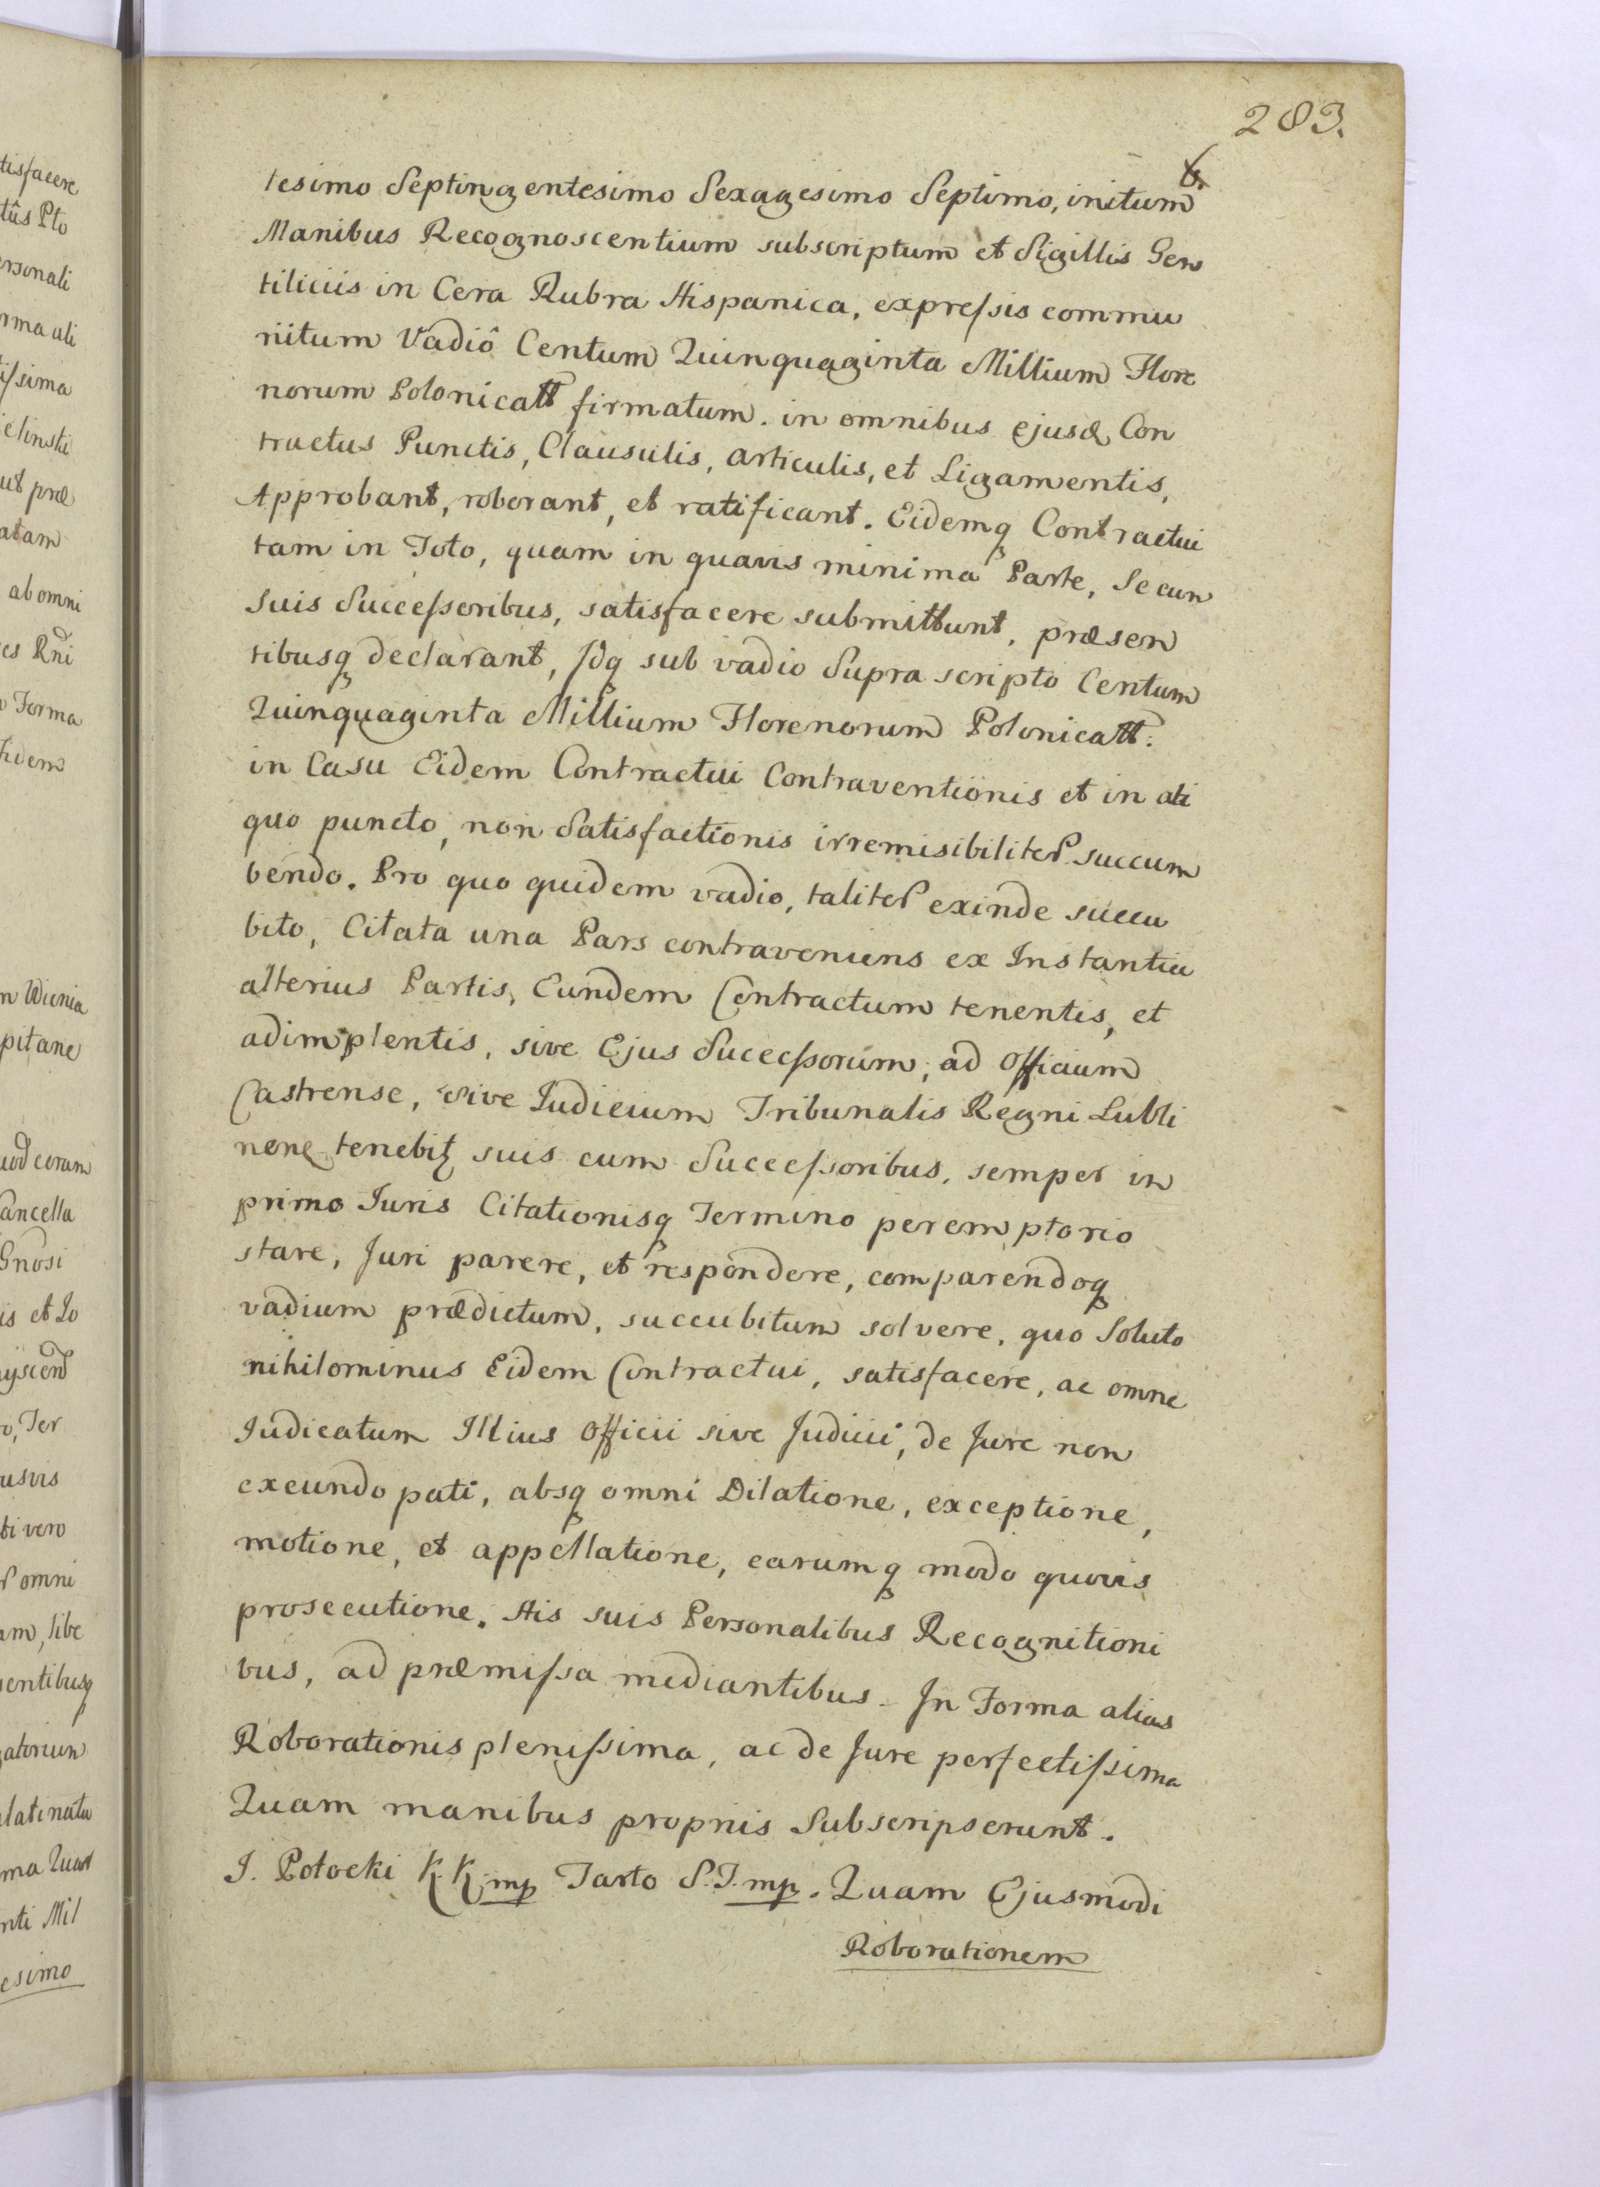 283.
6.
tesimo Septingentesimo Sexagesimo Septimo, initum
Manibus Recognoscentium subscriptum et Sigillis Gen
tiliciis in Cera Rubra Hispanica, expressis commu
nitum Vadiô Centum Quinquaginta Millium Flore
norum Polonicall firmatum. in omnibus ejusd. Con
tractus Punctis, Clausulis, articulis, et Ligamentis,
Approbant, roborant, et ratificant. Eidemq Contractui
tam in Toto, quam in quavis minima Parte, Se cum
suis Successoribus, satisfacere submittunt, præsen
tibusq declarant, Idq sub vadio Supra scripto Centum
Quinquaginta Millium Florenorum Polonicall.
in Casu Eidem Contractui Contraventionis et in ali
quo puncto, non Satisfactionis irremisibiliter succum
bendo. Pro quo quidem vadio, taliter exinde succu
bito, Citata una Pars contraveniens ex Instantia
alterius Partis, Eundem Contractum tenentis, et
adimplentis, sive Ejus Successorum, ad Officium
Castrense, sive Judicium Tribunalis Regni Lubli
nen. tenebit suis cum Successoribus, semper in
primo Juris Citationisq Termino peremptorio
stare, Juri parere, et respondere, comparendoq
vadium prædictum, succubitum solvere, quo Soluto
nihilominus Eidem Contractui, satisfacere, ac omne
Judicatum Illius Officii sive Judicii, de Jure non
exeundo pati, absq omni Dilatione, exceptione,
motione, et appellatione, earumq modo quovis
prosecutione. His suis Personalibus Recognitioni
bus, ad præmissa mediantibus. In Forma alias
Roborationis plenissima, ac de Jure perfectissima
Quam manibus propriis Subscripserunt.
J. Potocki K. K. mp Tarło S. J. mp. Quam Ejusmodi
Roborationem